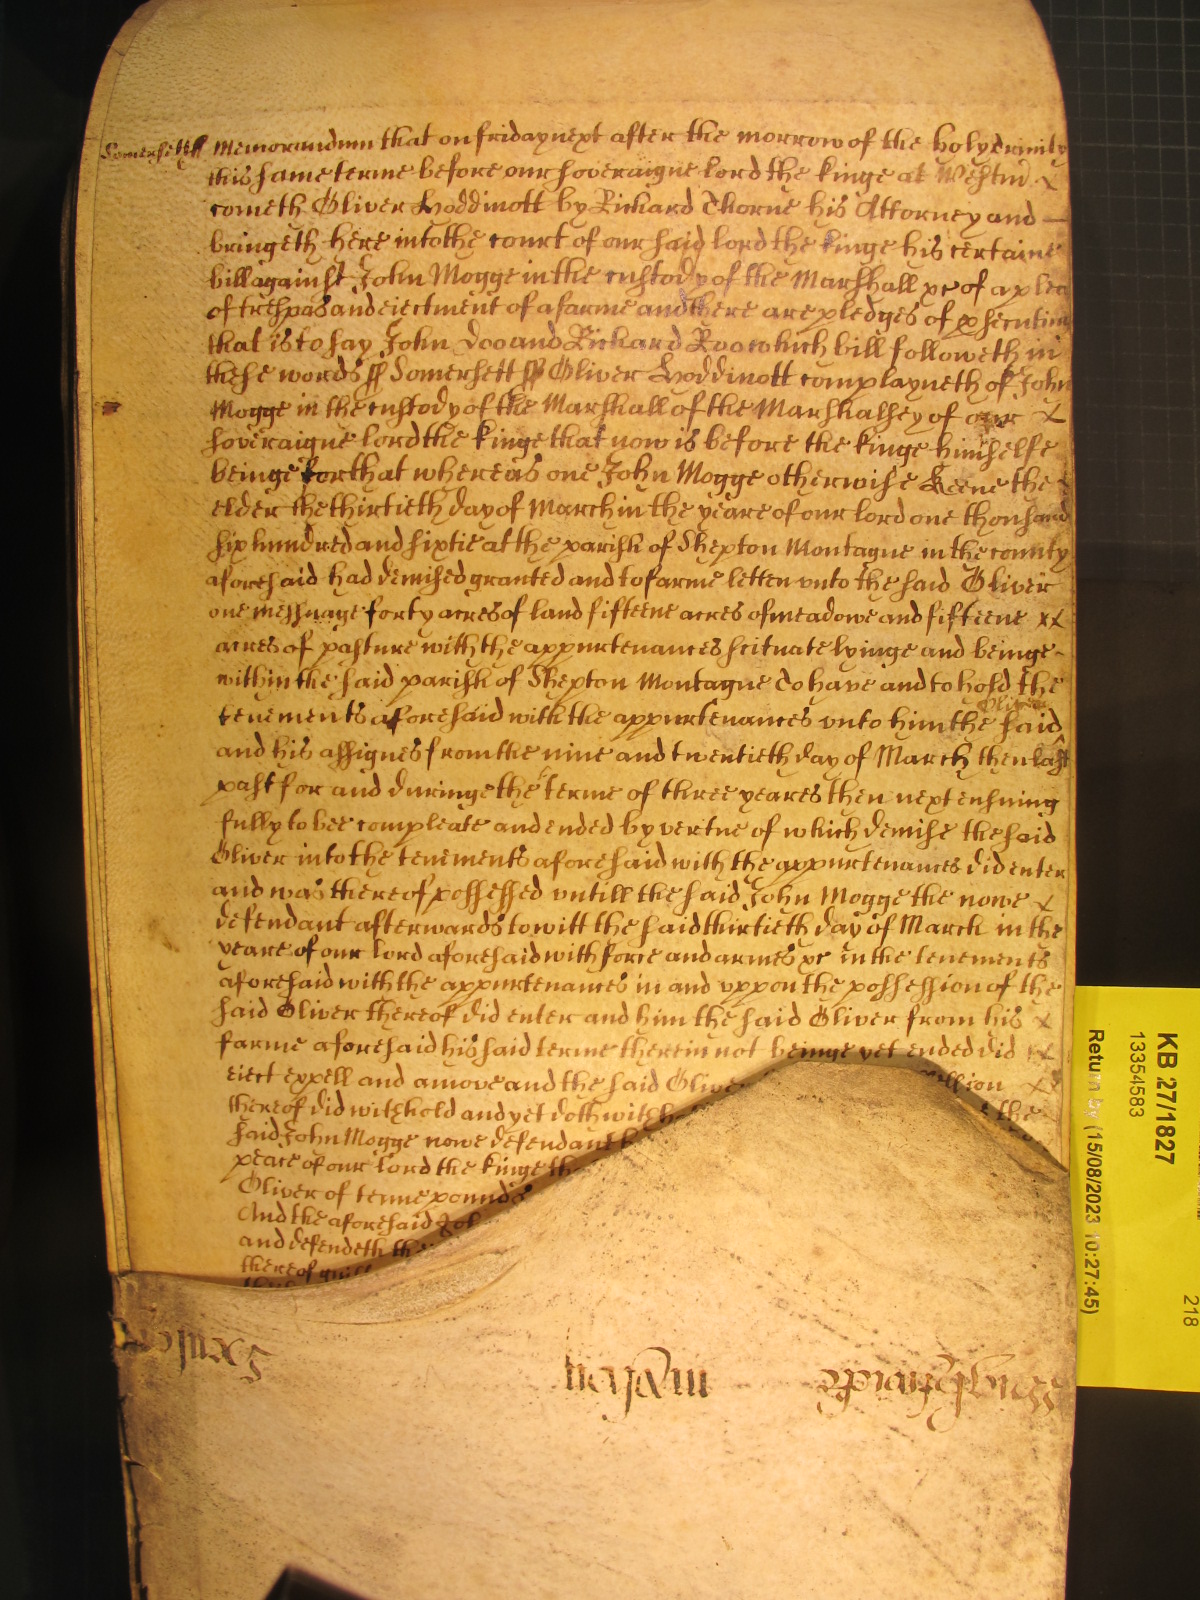 Somersett ss Memorandum that on friday next after the morrow of the holy Trinity
this same terme before our soveraigne lord the kinge at Westm̄ x
cometh Oliver Hoddinott by Richard Thorne his Attorney and —
bringeth here into the court of our said lord the kinge his certaine
bill against John Mogge in the custody of the Marshall &c of a plea
of trespas and eiectment of a farme and there are pledges of ꝓsecution
that is to say John Doo and Richard Roo which bill followeth in
these words ss Somersett ss Oliver Hoddinott complayneth of John
Mogge in the custody of the Marshall of the Marshalsey of our x
soveraigne lord the kinge that now is before the kinge himselfe
beinge for that whereas one John Mogge otherwise Keene the
elder the thirtieth day of March in the yeare of our lord one thousand
six hundred and sixtie at the parish of Shepton Montague in the county
aforesaid had demised granted and to farme letten unto the said Oliver
one messuage forty acres of land fifteene acres of meadowe and fifteene xx
acres of pasture with the appurtenances scituate lyinge and beinge
within the said parish of Shepton Montague To have and to hold the
tenements aforesaid with the appurtenances unto him the said Oliver
and his assignes from the nine and twentieth day of March then last
past for and duringe the terme of three yeares then next ensuing
fully to bee compleate and ended by vertue of which demise the said
Oliver into the tenements aforesaid with the appurtenances did enter
and was thereof possessed untill the said John Mogge the nowe x
defendant afterwards to witt the said thirtieth day of March in the
yeare of our lord aforesaid with force and armes &c in the tenements
aforesaid with the appurtenances in and uppon the possession of the
said Oliver thereof did enter and him the said Oliver from his x
farme aforesaid his said terme therein not beinge yet ended did x
eiect expell and amove and the said Olive
thereof did withhold and yet doth withh the
said John Mogge nowe defendant
peace of our lord the kinge th
Oliver of tenne pounds
And the aforesaid Joh
and defendeth the
thereof
KB 27/1827
13354583
Return by (15/08/2023 10:27:45)
218